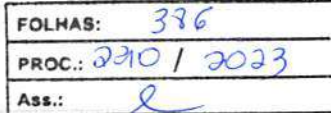 FOLHAS: 386
PROC.: 2210 / 2023
Ass.: